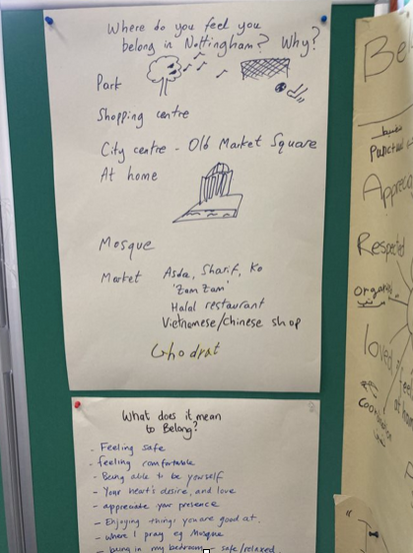 Where do you feel you
belong in Nottingham? Why?
Park
Shopping centre
City centre - Old Market Square
At home
Mosque
Market Asda, Sharif, Ko
'Zam Zam'
Halal restaurant
Vietnamese/Chinese shop
Ghodrat
What does it mean
to Belong?
- Feeling safe
- feeling comfortable
- Being able to be yourself
- Your heart's desire, and love
- appreciate your presence
- Enjoying things you are good at.
- where I pray eg Mosque
- being in my bedroom - safe/relaxed
Be
Punctual
Apprec
Respected
organ
loved
feel
at home
Coordination